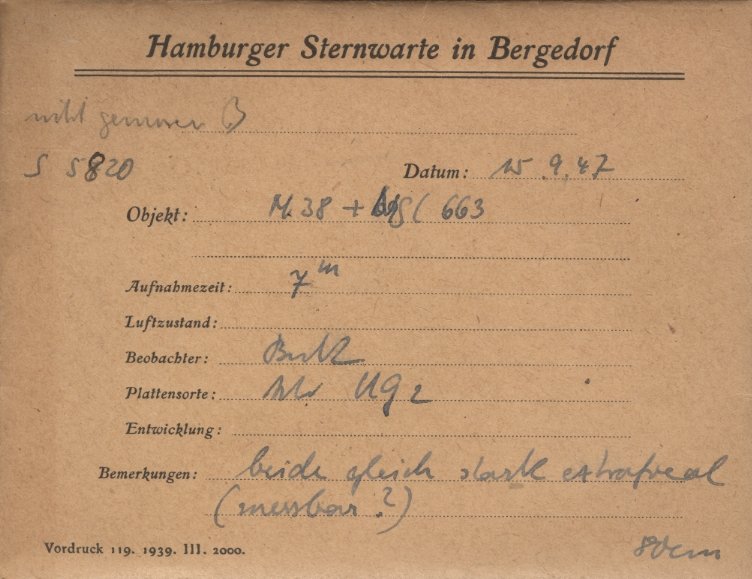 Hamburger Sternwarte in Bergedorf
nicht gemessen B
S 5820
Datum: 15.9.47
Objekt: M 38 + NGC 663
Aufnahmezeit: 7 m
Luftzustand:
Beobachter:
Plattensorte: UG 2
Entwicklung:
Bemerkungen: beide gleich stark extrafocal
(messbar?)
Vordruck 119. 1939. III. 2000.
80cm